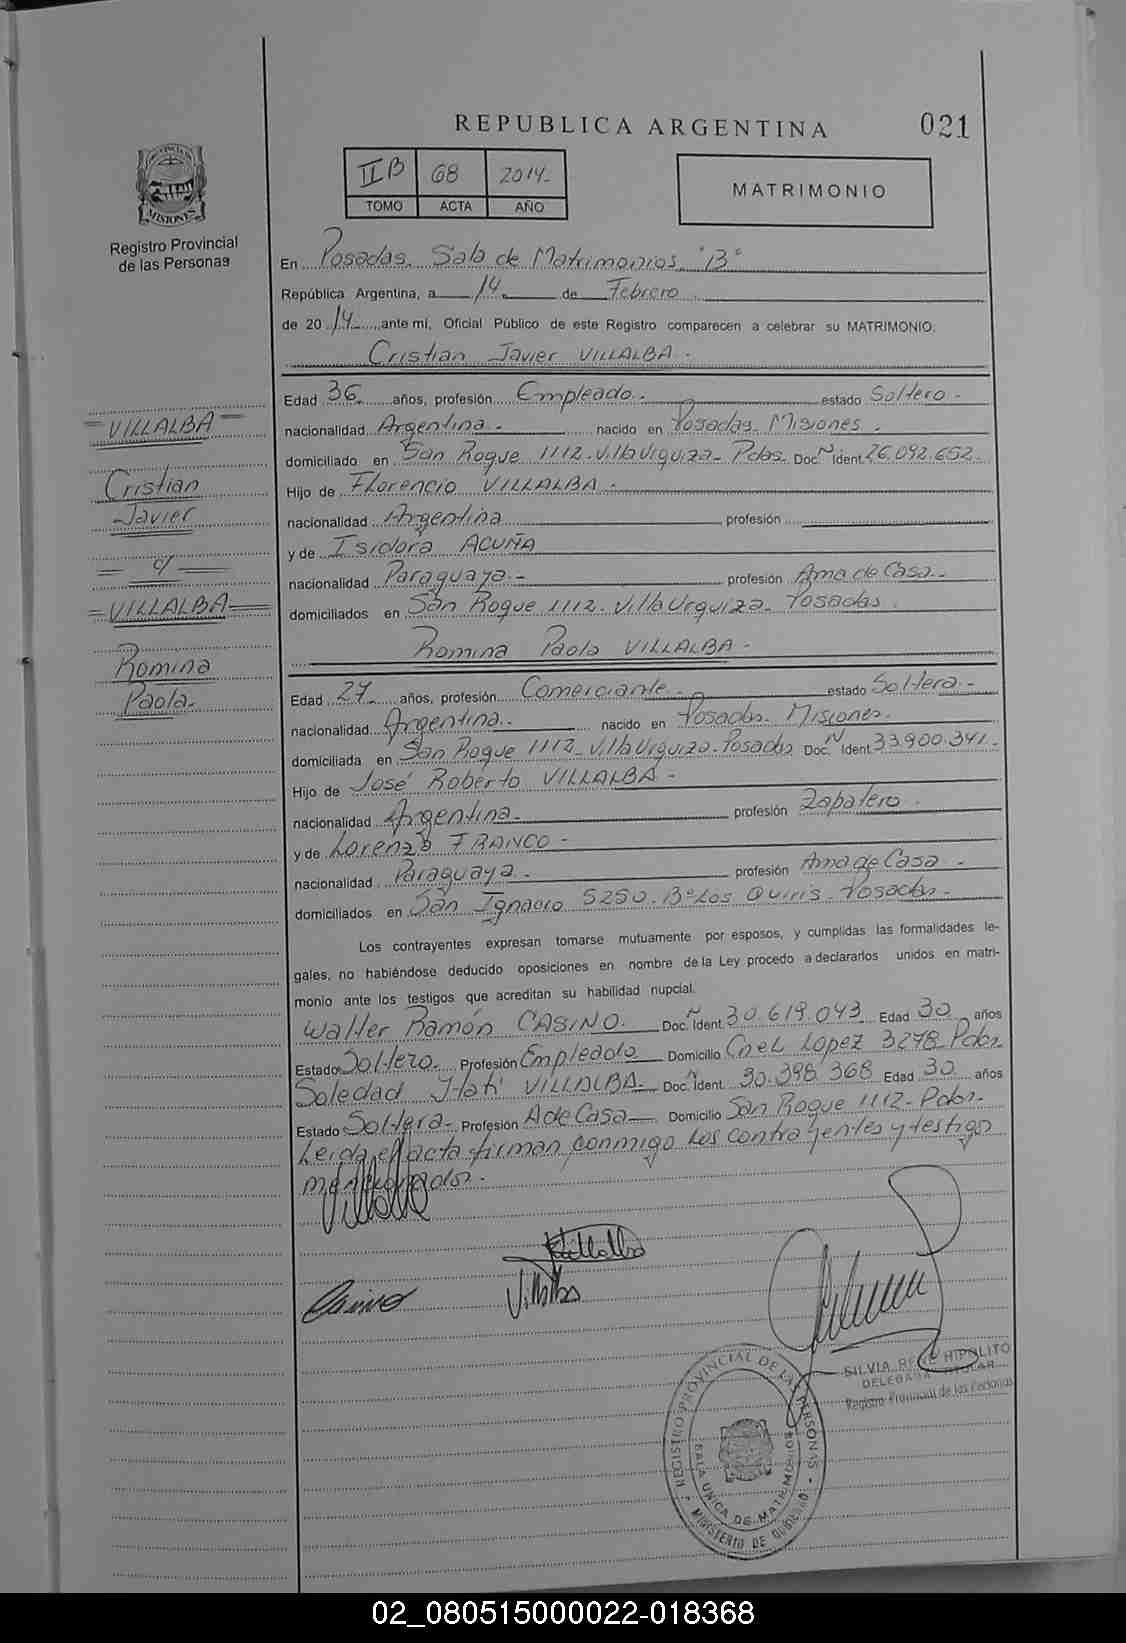 REPUBLICA ARGENTINA
021
PROVINCIA DE
MISIONES
Registro Provincial
de las Personas
II B 68 2014-
TOMO ACTA AÑO
MATRIMONIO
En Posadas. Sala de Matrimonios "B"
República Argentina, a 14. de Febrero
de 20 14 ante mí, Oficial Público de este Registro comparecen a celebrar su MATRIMONIO:
Cristian Javier VILLALBA -
Edad 36 años, profesión Empleado. estado Soltero -
nacionalidad Argentina - nacido en Posadas Misiones.
domiciliado en San Roque 1112. Villa Urquiza - Pdas. Doc. N Ident. 26.092.652.
Hijo de Florencio VILLALBA -
nacionalidad Argentina profesión
y de Isidora ACUÑA
nacionalidad Paraguaya - profesión Ama de Casa -
domiciliados en San Roque 1112. Villa Urquiza - Posadas.
Romina Paola VILLALBA -
Edad 27 años, profesión Comerciante - estado Soltera -
nacionalidad Argentina. nacido en Posadas. Misiones.
domiciliada en San Roque 1112 - Villa Urquiza. Posadas Doc. N Ident. 33.900.341 -
Hijo de José Roberto VILLALBA -
nacionalidad Argentina. profesión Zapatero.
y de Lorenza FRANCO -
nacionalidad Paraguaya. profesión Ama de Casa -
domiciliados en San Ignacio 5250. Bº Los Quiris - Posadas -
Los contrayentes expresan tomarse mutuamente por esposos, y cumplidas las formalidades le-
gales, no habiéndose deducido oposiciones en nombre de la Ley procedo a declararlos unidos en matri-
monio ante los testigos que acreditan su habilidad nupcial.
Walter Ramón CASINO. Doc. N Ident. 30.619.043 Edad 30 años
Estado Soltero. Profesión Empleado Domicilio Cnel Lopez 3278 Pdas.
Soledad Itatí VILLALBA - Doc. N Ident. 30.398.368 Edad 30 años
Estado Soltera - Profesión A de Casa Domicilio San Roque 1112 - Pdas.
Leida el acta firman conmigo los contrayentes y testigos
mencionados.
= VILLALBA =
Cristian
Javier
= c/ =
= VILLALBA =
Romina
Paola -
Villalba
Villalba
Casino
SILVIA RENE HIPOLITO
DELEGADA TITULAR
Registro Provincial de las Personas
REGISTRO PROVINCIAL DE LAS PERSONAS
SALA UNICA DE MATRIMONIOS
MINISTERIO DE GOBIERNO
02_080515000022-018368